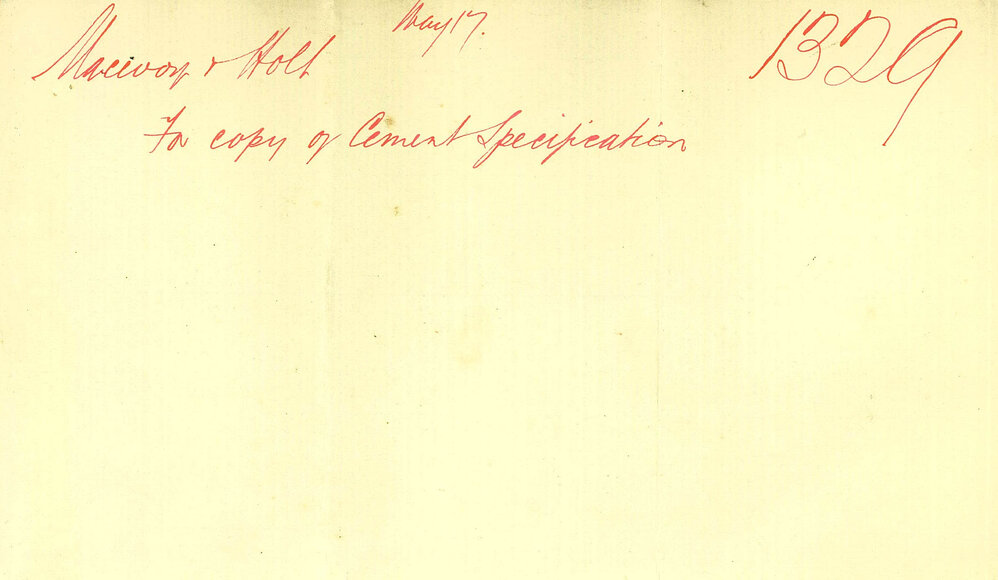 May 17.
Macevoy & Holt
1329
For copy of Cement Specification